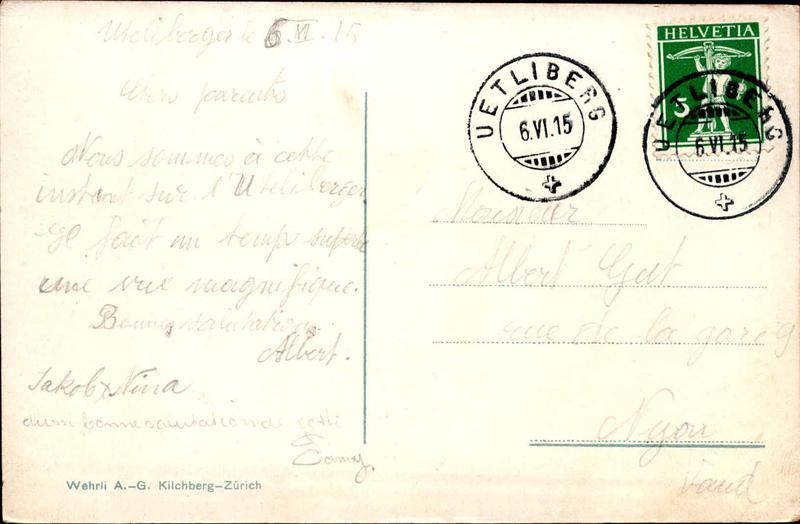 Utelibergerle 6.VI.15
Chers parents
Nous sommes à cette
instant sur l'Uteliberger
ge fait un temp superbe
une vue magnifique.
Bonnes salutations
Albert.
Jakob x Nina
aussi bonne salutation de
UETLIBERG
6.VI.15
HELVETIA
5
UETLIBERG
6.VI.15
Monsieur
Albert Gut
rue de la gare 9
Nyon
Vaud
Wehrli A.-G. Kilchberg-Zürich